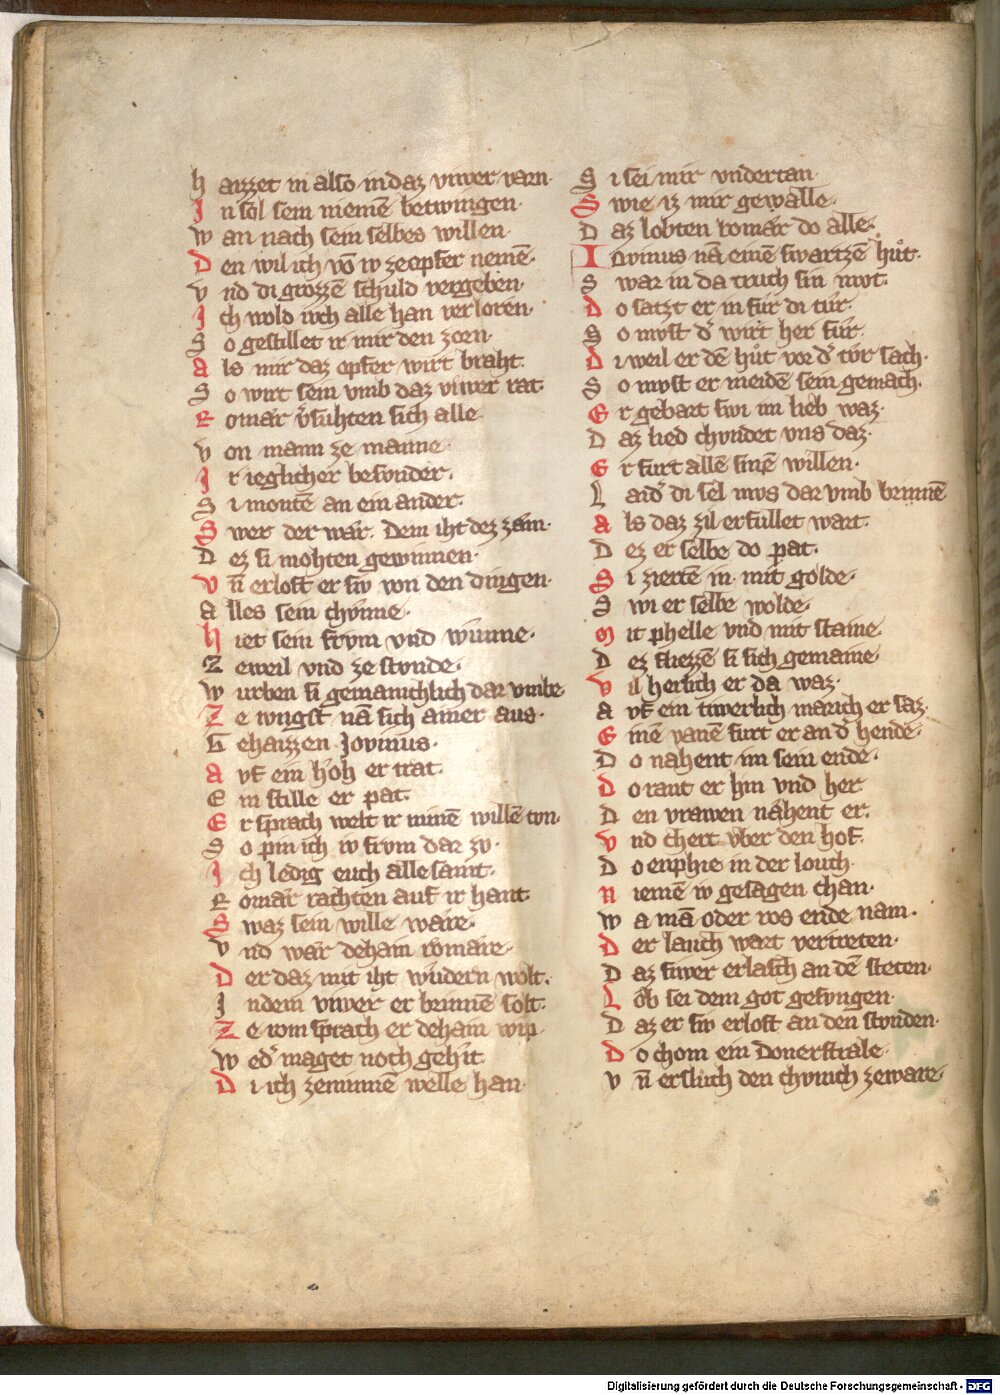 Haizzet in also in daz viwer varn·
In sol sein niemē betwingen·
Wan nach sein selbes willen·
Den wil ich vō iv ze opfer nemē·
Vnd di grozzē schuld vergeben·
Ich wold ivch alle han verloren·
So gestillet ir mir den zorn·
Als mir daz opfer wirt braht.
So wirt sein vmb daz viwer rat·
Romær v̄suhten sich alle·
Von mann ze manne·
Ir ieglicher besvnder·
Si montē an ein ander·
Swer der wær. Dem iht dez zæm·
Dez si mohten gewinnen·
Vn̄ erlost er siv von den dingen·
Alles sein chvnne·
Hiet sein frvm vnd wunne·
Zeweil vnd ze stvnde·
Wurben si gemainchlich dar vmbe
Ze ivngst nā sich ainer aus·
Gehaizzen Jovinus·
Avf ein hoh er trat·
Ein stille er pat·
Er sprach welt ir minē willē tvn·
So pin ich iv frvm dar zv·
Ich ledig euch alle samt·
Romær rachten auf ir hant·
Swaz sein wille wære·
Vnd wær dehain romære·
Der daz mit iht wudern wolt·
In dem viwer er brinnē solt·
Ze rom sprach er dehain wip·
Wed' maget noch gehit
Di ich ze minnē welle han·
Si sei mir vndertan·
Swie iz mir gevalle·
Daz lobten romær do alle·
Iovinus nā einē swartzē hůt·
Swar in da truch sin mvt·
Do satzt er in fur di tur·
So mvst d' wirt her fur·
Di weil er dē hůt vor d' tor sach·
So mvst er meidē sein gemach·
Er gebart swi im lieb waz·
Daz lied chvndet vns daz·
Er furt allē sinē willen·
Laid' di sel mvs dar vmb brinnē
Als daz zil erfullet wart·
Dez er selbe do pat·
Si ziertē in mit golde·
Swi er selbe wolde·
Mit phelle vnd mit staine·
Dez fliezzē si sich gemaine·
Vil herlich er da waz·
Avf ein tiwerlich march er saz·
Einē vanē furt er an d' hende·
Do nahent im sein ende·
Do rant er hin vnd her·
Den vrawen næhent er·
Vnd chert vber den hof·
Do enphie in der louch·
Niemē iv gesagen chan·
Wa mā oder ros ende nam·
Der lauch wart vertreten·
Daz fiwer erlasch an dē steten·
Lob sei dem got gesvngen·
Daz er siv erlost an den stvnden·
Do chom ein donerstrale·
Vn̄ ersluch den chvnich zeware·
Digitalisierung gefördert durch die Deutsche Forschungsgemeinschaft - DFG